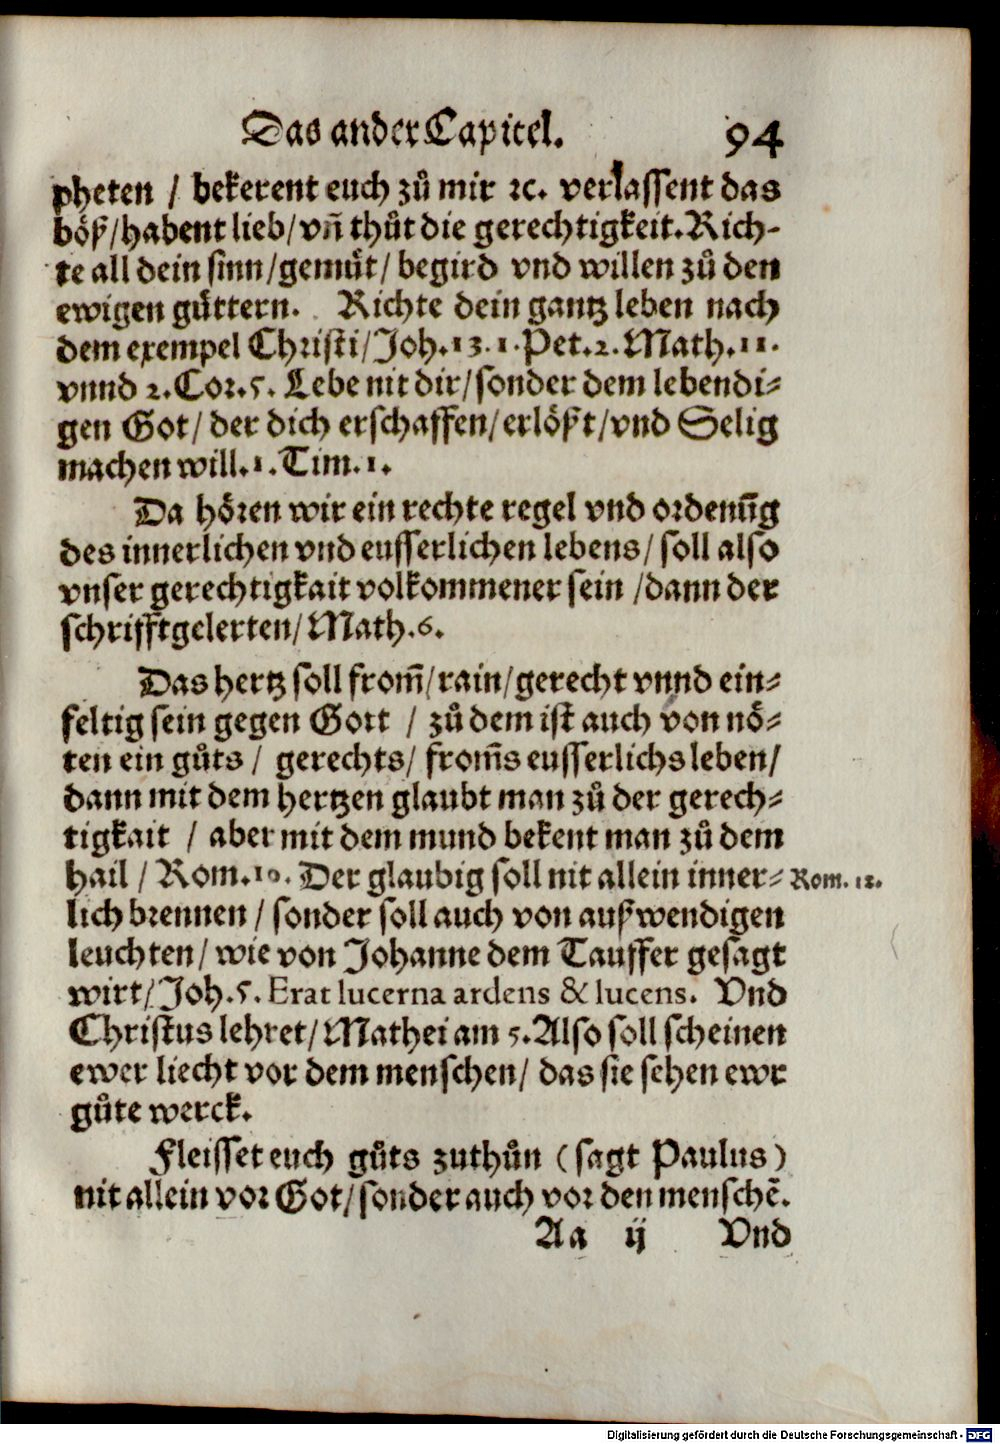 Das ander Capitel. 94
pheten / bekerent euch zů mir ꝛc. verlassent das
böß/habent lieb/vñ thůt die gerechtigkeit.Rich-
te all dein sinn/gemůt/ begird vnd willen zů den
ewigen gůttern. Richte dein gantz leben nach
dem exempel Christi/Joh.13.1.Pet.2.Math.11.
vnnd 2.Cor.5. Lebe nit dir/sonder dem lebendi-
gen Got/ der dich erschaffen/erlößt/vnd Selig
machen will.1.Tim.1.
Da hören wir ein rechte regel vnd ordenūg
des innerlichen vnd eusserlichen lebens/ soll also
vnser gerechtigkait volkommener sein /dann der
schrifftgelerten/Math.6.
Das hertz soll from̄/rain/gerecht vnnd ein-
feltig sein gegen Gott / zů dem ist auch von nö-
ten ein gůts / gerechts/ from̄s eusserlichs leben/
dann mit dem hertzen glaubt man zů der gerech-
tigkait / aber mit dem mund bekent man zů dem
hail / Rom.10. Der glaubig soll nit allein inner- Rom. 12.
lich brennen / sonder soll auch von außwendigen
leuchten/ wie von Johanne dem Tauffer gesagt
wirt/Joh.5. Erat lucerna ardens & lucens. Vnd
Christus lehret/Mathei am 5.Also soll scheinen
ewer liecht vor dem menschen/ das sie sehen ewr
gůte werck.
Fleisset euch gůts zuthůn (sagt Paulus)
nit allein vor Got/sonder auch vor den menschē.
Aa ij Vnd
Digitalisierung gefördert durch die Deutsche Forschungsgemeinschaft - DFG